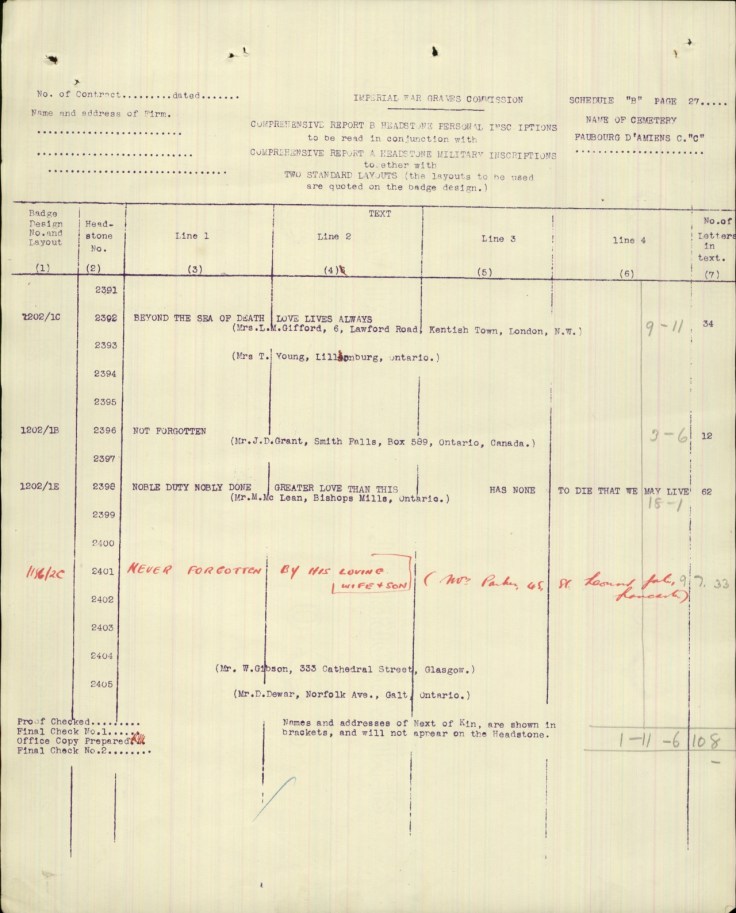 No. of Contract.........dated.......
IMPERIAL WAR GRAVES COMMISSION
SCHEDULE "B" PAGE 27.....
Name and address of Firm.
NAME OF CEMETERY
COMPREHENSIVE REPORT B HEADSTONE PERSONAL INSC IPTIONS
to be read in conjunction with
FAUBOURG D'AMIENS C."C"
COMPREHENSIVE REPORT A HEADSTONE MILITARY INSCRIPTIONS
to ether with
TWO STANDARD LAYOUTS (the layouts to be used
are quoted on the badge design.)
Badge Design No.and Layout
Head- stone No.
TEXT
No.of Letters in text.
Line 1
Line 2
Line 3
line 4
(1) (2) (3) (4) (5) (6) (7)
2391
1202/1C 2392 BEYOND THE SEA OF DEATH LOVE LIVES ALWAYS 34
(Mrs.L.M.Gifford, 6, Lawford Road, Kentish Town, London, N.W.) 9-11
2393
(Mrs T. Young, Ontario.)
2394
2395
1202/1B 2396 NOT FORGOTTEN 9-6 12
(Mr.J.D.Grant, Smith Falls, Box 589, Ontario, Canada.)
2397
1202/1E 2398 NOBLE DUTY NOBLY DONE GREATER LOVE THAN THIS HAS NONE TO DIE THAT WE MAY LIVE 62
(Mr.M.Mc Lean, Bishops Mills, Ontario.) 18-1
2399
2400
2401 NEVER FORGOTTEN BY HIS LOVING 33
WIFE & SON
2402
2403
2404
(Mr. W.Gibson, 333 Cathedral Street, Glasgow.)
2405
(Mr.D.Dewar, Norfolk Ave., Galt, Ontario.)
Proof Checked.........
Final Check No.1......
Office Copy Prepared
Final Check No.2........
Names and addresses of Next of Kin, are shown in
brackets, and will not appear on the Headstone.
1-11-6 108